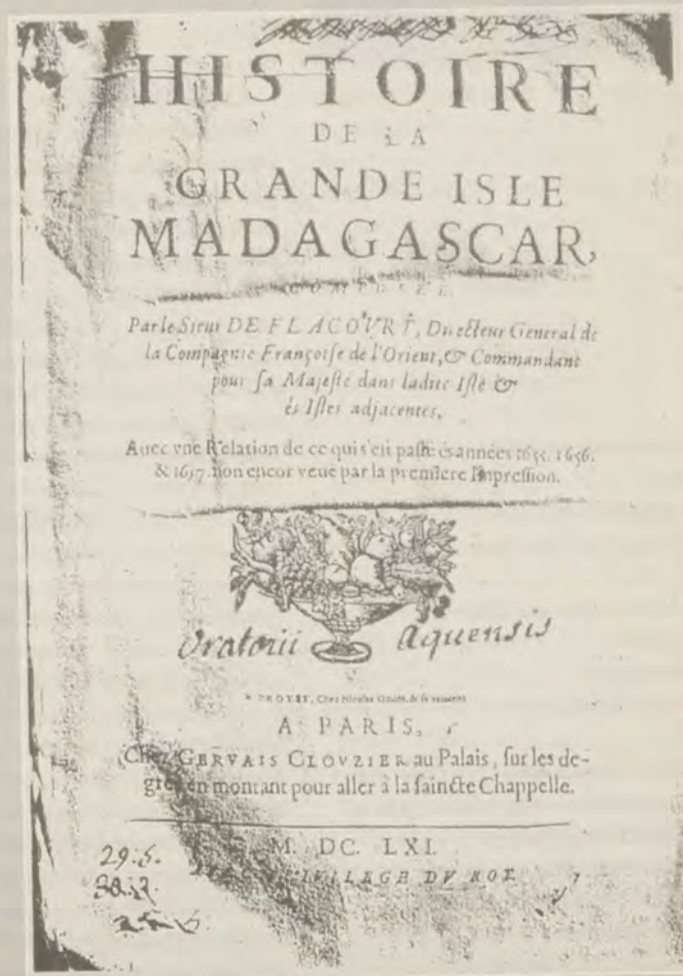 HISTOIRE
DE LA
GRANDE ISLE
MADAGASCAR,
COMPOSEE
Par le Sieur DE FLACOVRT, Directeur General de
la Compagnie Françoise de l'Orient, & Commandant
pour sa Majesté dans ladite Isle &
és Isles adjacentes,
Auec vne Relation de ce qui s'est passé és années 1655. 1656.
& 1657. non encor veuë par la premiere Impression.
Oratorii Aquensis
A TROYES, Chez Nicolas
A PARIS,
Chez GERVAIS CLOVZIER au Palais, sur les de-
grez en montant pour aller à la saincte Chappelle.
M. DC. LXI.
29.5.
AVEC PRIVILEGE DV ROY.